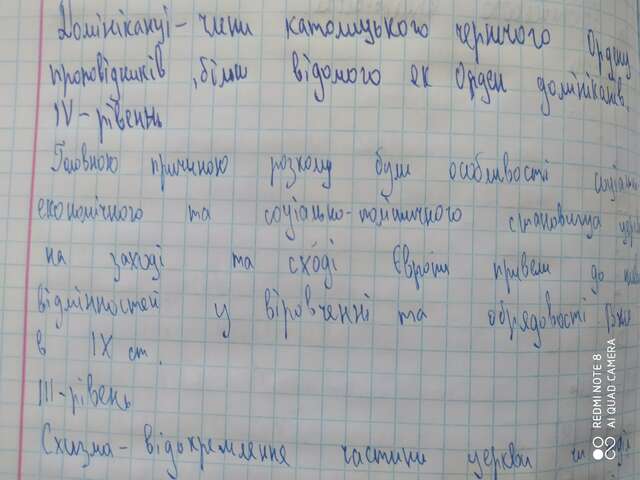 Домініканці - члени католицького чернечого Ордену
проповідників, більш відомого як Орден домініканів.
IV - рівень
Головною причиною розколу були особливості
економічного та соціально-політичного становища
на заході та сході Європи привели до
відмінностей у віровченні та обрядовості вже
в IX ст.
III - рівень
Схизма - відокремлення частини церкви чи
REDMI NOTE 8
AI QUAD CAMERA